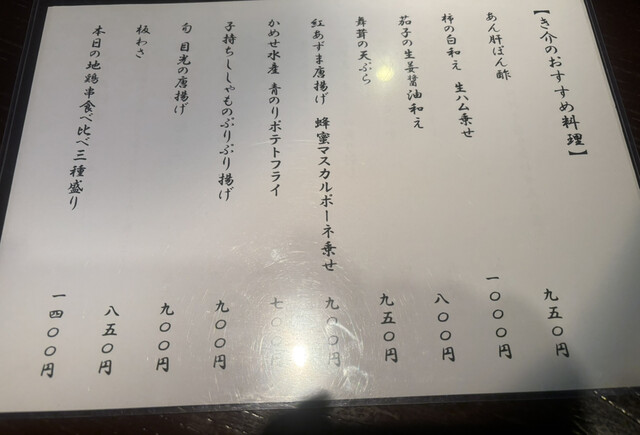 【き介のおすすめ料理】
あん肝ぽん酢 九五〇円
柿の白和え 生ハム乗せ 一〇〇〇円
茄子の生姜醤油和え 八〇〇円
舞茸の天ぷら 九五〇円
紅あずま唐揚げ 蜂蜜マスカルポーネ乗せ 九〇〇円
かめせ水産 青のりポテトフライ 七〇〇円
子持ちししゃものぷりぷり揚げ 九〇〇円
旬 目光の唐揚げ 九〇〇円
板わさ 八五〇円
本日の地鶏串食べ比べ三種盛り 一四〇〇円